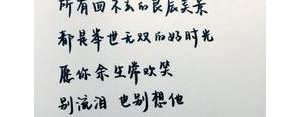 所有回不去的良辰美景
都是举世无双的好时光
愿你余生常欢笑
别流泪 也别想他